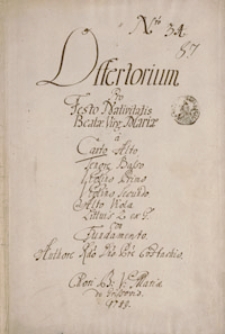 Nro 34
57
Offertorium
Pro
Festo Nativitatis
Beatæ Virg: Mariæ
à
Canto Alto
Tenore Basso
Violino Primo
Violino Secundo
Alto Viola
Lituis 2 ex F.
Con
Fundamento.
Authore Rdo Pre
Chori B: V: Mariæ
de